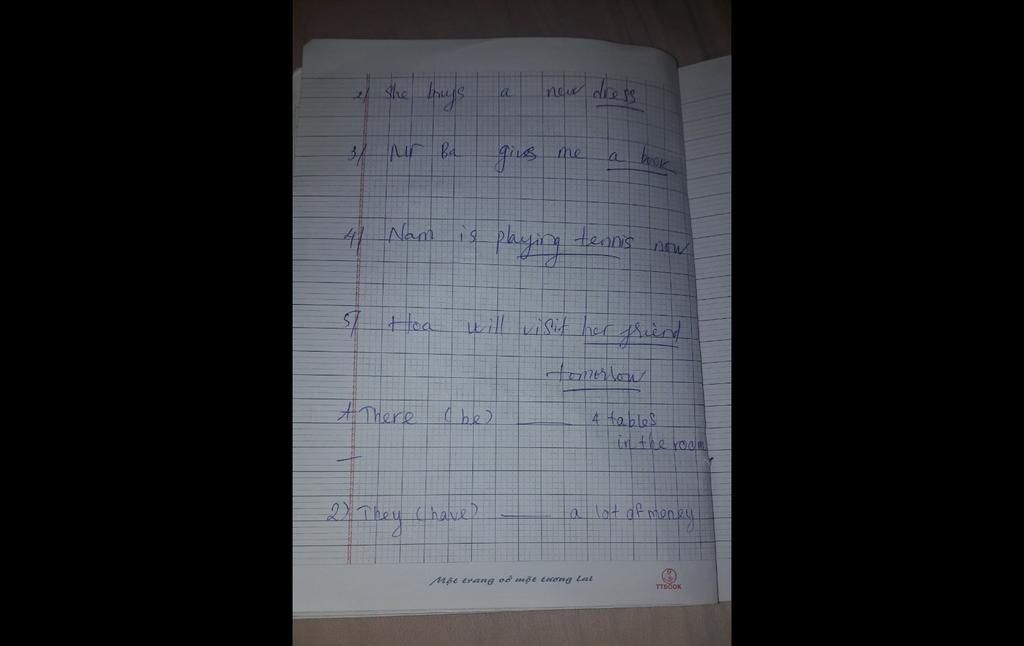 2/ She buys a new dress
3/ Mr Ba gives me a book
4/ Nam is playing tennis now
5/ Hoa will visit her friend
tomorrow
1. There (be) ____ 4 tables
in the room
2) They (have) ____ a lot of money
Một trang vở một tương lai
TTBOOK